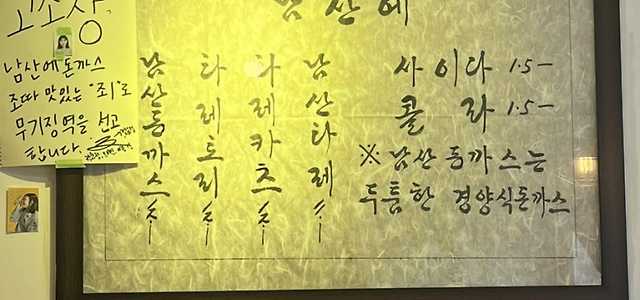 고소장
남산에돈까스
조따 맛있는 "죄"로
무기징역을 선고
합니다.
남산에
남산돈까스
타레토리
타레카츠
남산타레
사이다 1.5-
콜라 1.5-
※ 남산 돈까스는
두툼한 경양식돈까스